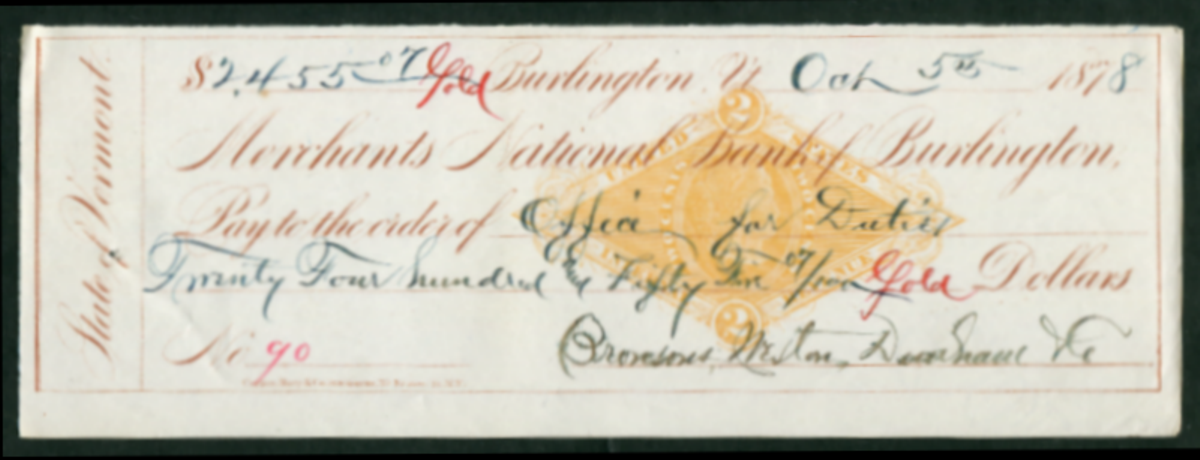 State of Vermont.
$2,455 07 Gold Burlington, Vt. Oct 5th 1878
Merchants National Bank of Burlington,
Pay to the order of Office for Duties
Twenty Four hundred & Fifty Five 07/100 Gold Dollars
No. 90
Bronsons, Weston, Dunham & Co
2
UNITED STATES
2